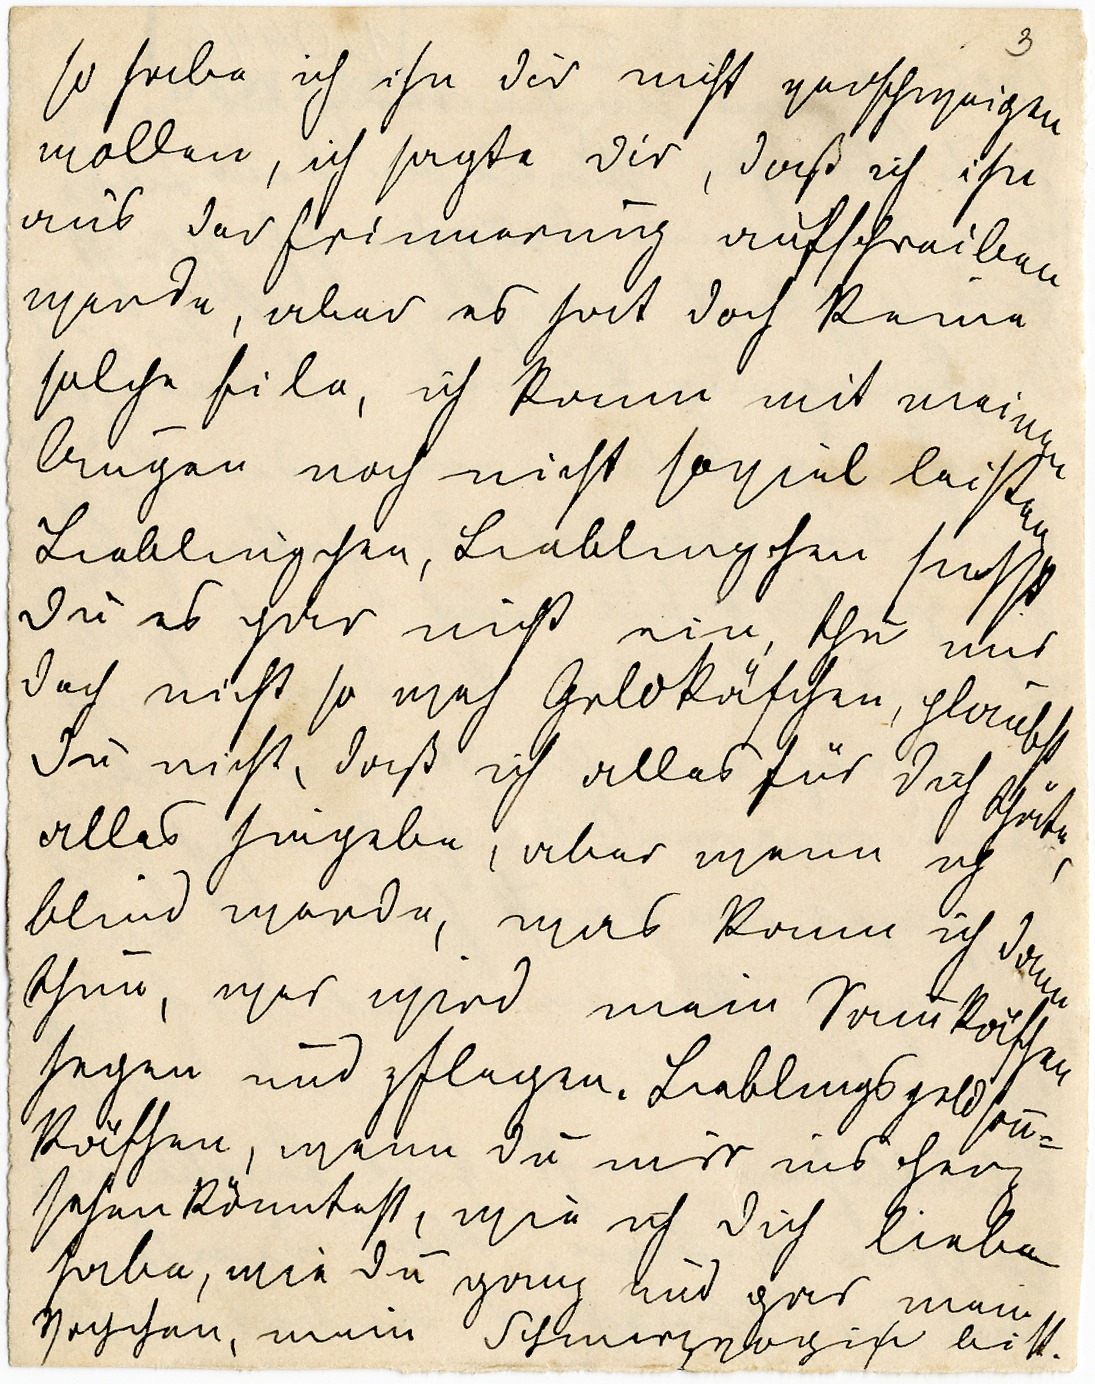 3
so habe ich ihn dir nicht verschweigen
wollen, ich sagte dir, daß ich ihn
aus der Erinnerung aufschreiben
werde, aber es hat doch keine
solche Eile, ich kann mit meinen
Augen noch nicht soviel leisten
Lieblingchen, Lieblingchen siehst
du es gar nicht ein, thu mir
doch nicht so weh Goldkäfchen, glaubst
du nicht, daß ich alles für dich thäte,
alles hingebe, aber wenn ich
blind werde, was kann ich dann
thun, wer wird mein
hegen und pflegen. Lieblingsgeldsau=
käfchen, wenn du mir ins Herz
sehen könntest, wie ich dich liebe
habe, wie du ganz und gar mein
mein bist.